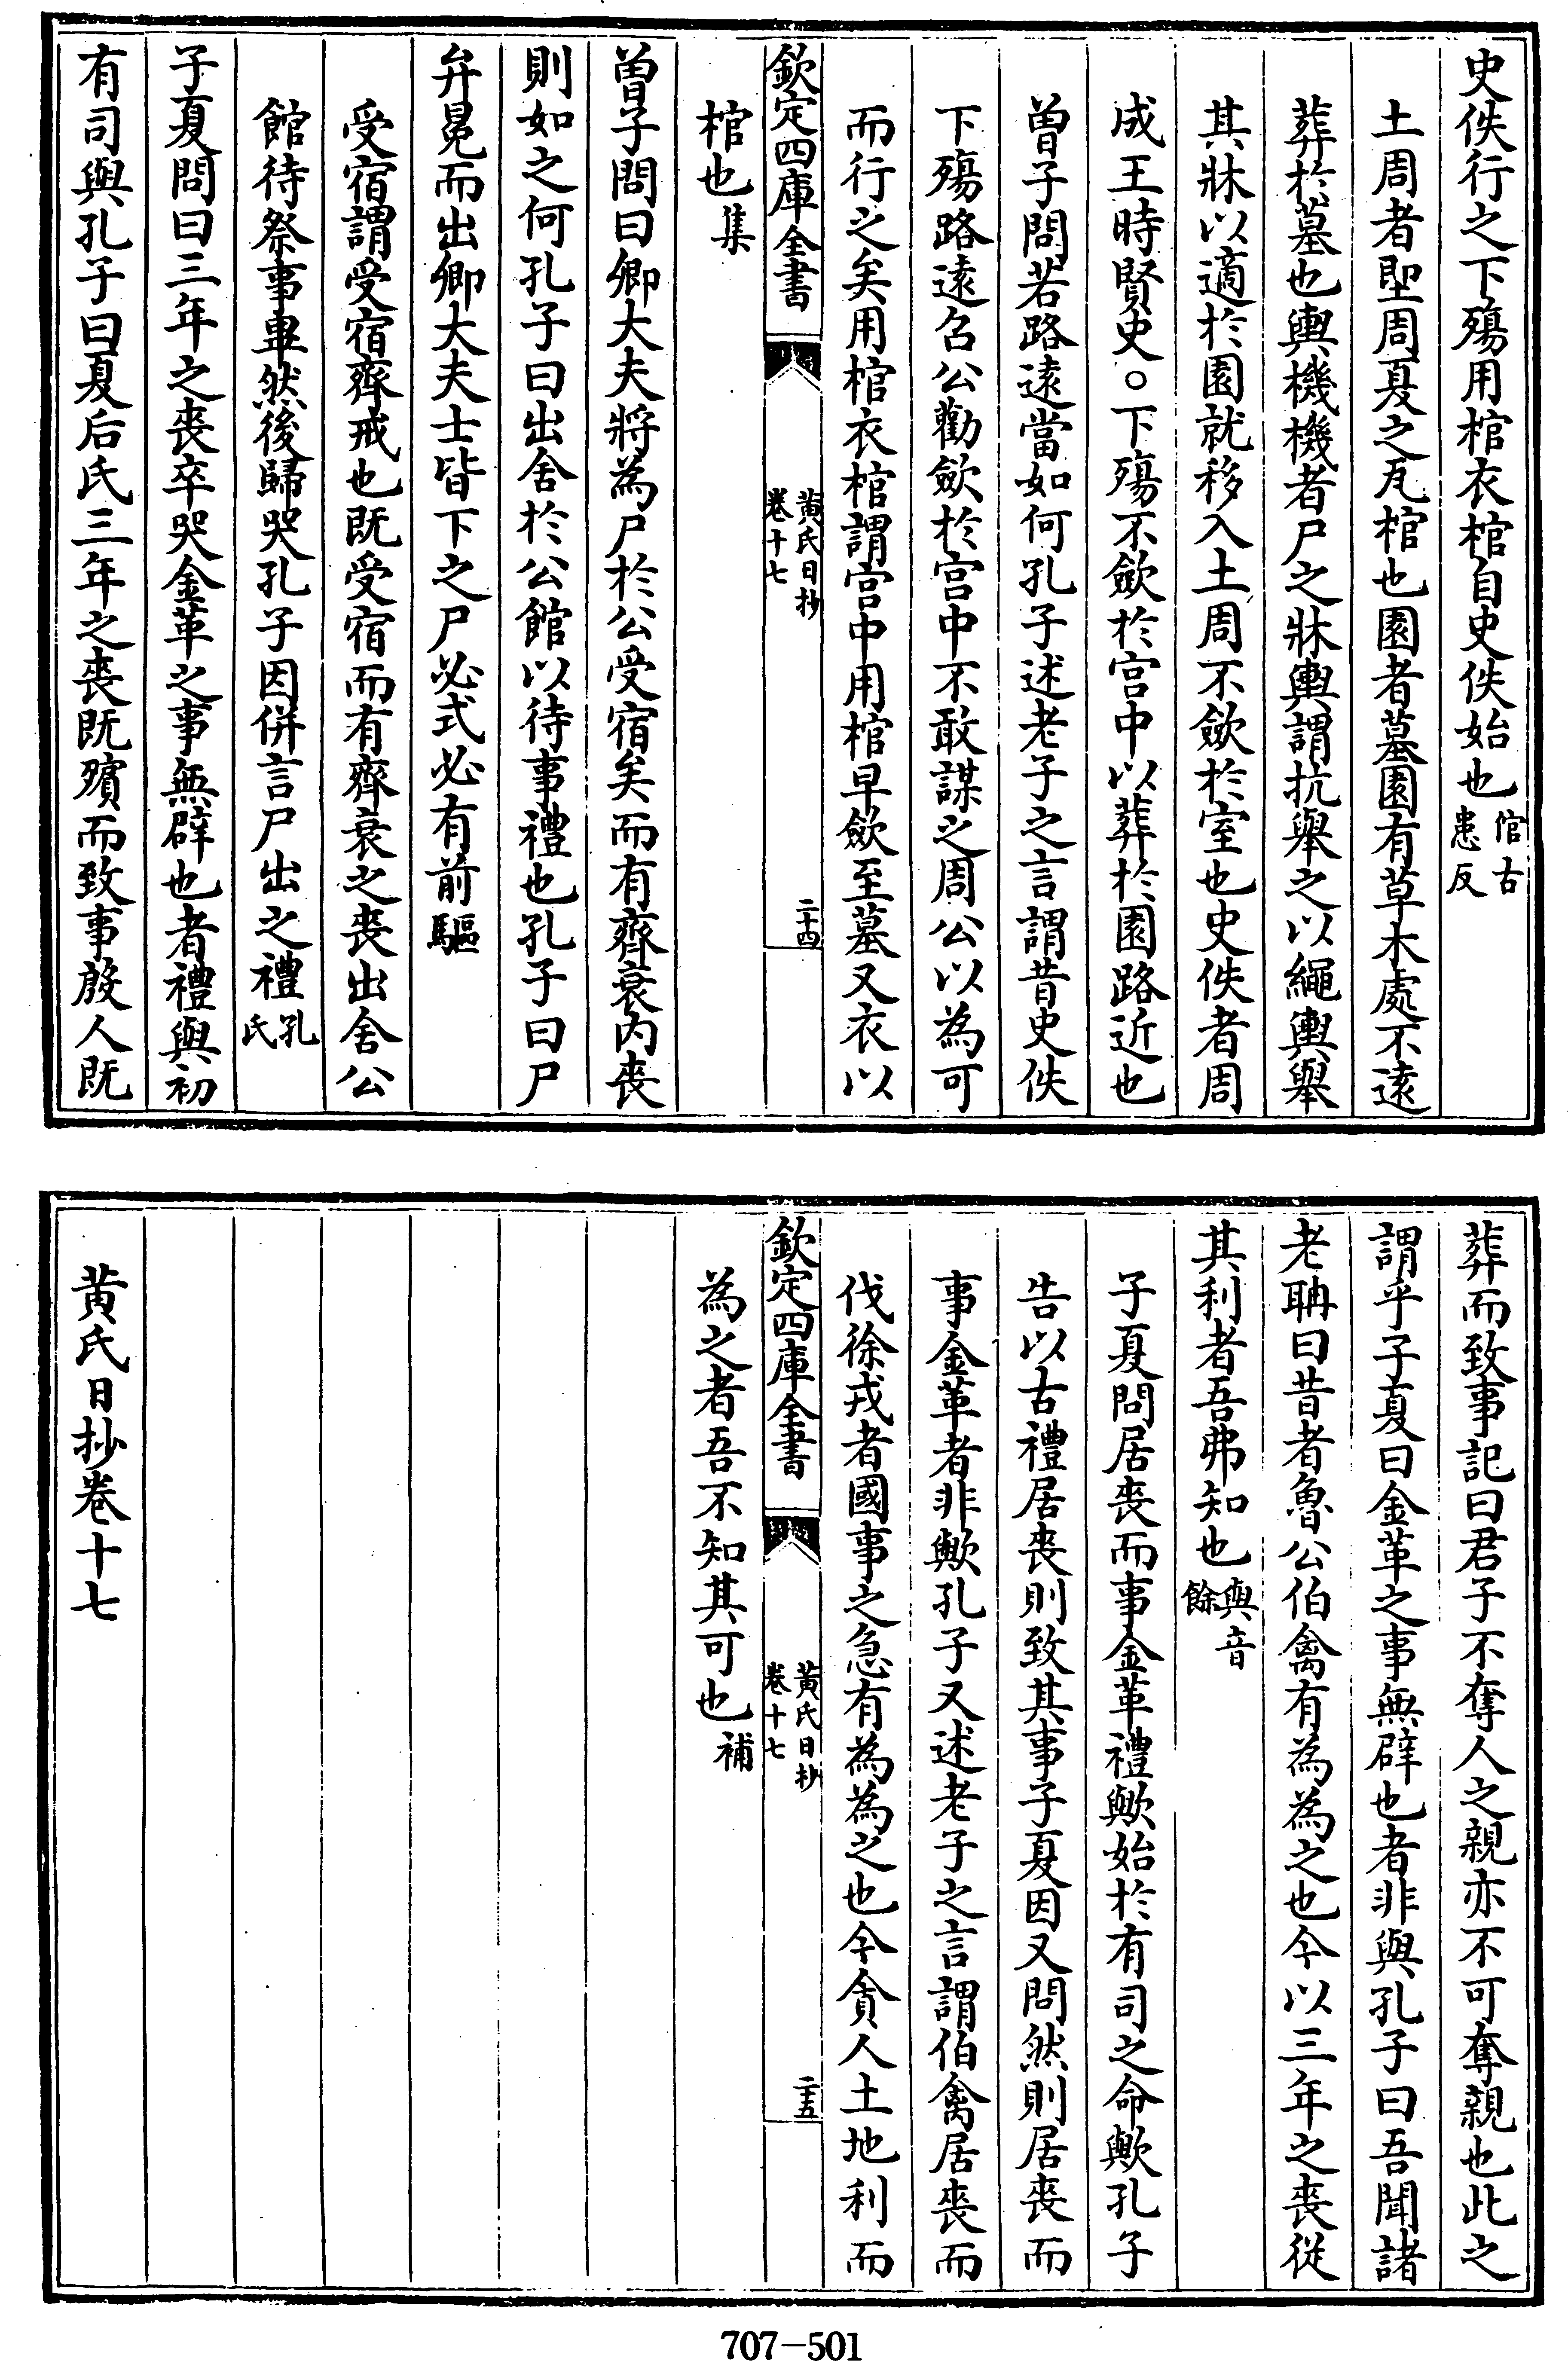 史佚行之下殤用棺衣棺自史佚始也棺古患反
土周者堲周夏之瓦棺也園者墓園有草木處不遠
葬於墓也輿機機者尸之牀輿謂抗舉之以繩輿舉
其牀以適於園就移入土周不斂於室也史佚者周
成王時賢史○下殤不斂於宫中以葬於園路近也
曾子問若路遠當如何孔子述老子之言謂昔史佚
下殤路遠召公勸斂於宫中不敢謀之周公以為可
而行之矣用棺衣棺謂宫中用棺早斂至墓又衣以
欽定四庫全書 黄氏日抄 卷十七 二十四
棺也集
曾子問曰卿大夫將為尸於公受宿矣而有齊衰内喪
則如之何孔子曰出舍於公館以待事禮也孔子曰尸
弁冕而出卿大夫士皆下之尸必式必有前驅
受宿謂受宿齊戒也既受宿而有齊衰之喪出舍公
館待祭事畢然後歸哭孔子因併言尸出之禮孔氏
子夏問曰三年之喪卒哭金革之事無辟也者禮與初
有司與孔子曰夏后氏三年之喪既殯而致事殷人既
葬而致事記曰君子不奪人之親亦不可奪親也此之
謂乎子夏曰金革之事無辟也者非與孔子曰吾聞諸
老聃曰昔者魯公伯禽有為為之也今以三年之喪從
其利者吾弗知也與音餘
子夏問居喪而事金革禮歟始於有司之命歟孔子
告以古禮居喪則致其事子夏因又問然則居喪而
事金革者非歟孔子又述老子之言謂伯禽居喪而
伐徐戎者國事之急有為為之也今貪人土地利而
欽定四庫全書 黄氏日抄 卷十七 二十五
為之者吾不知其可也補
黄氏日抄卷十七
707-501